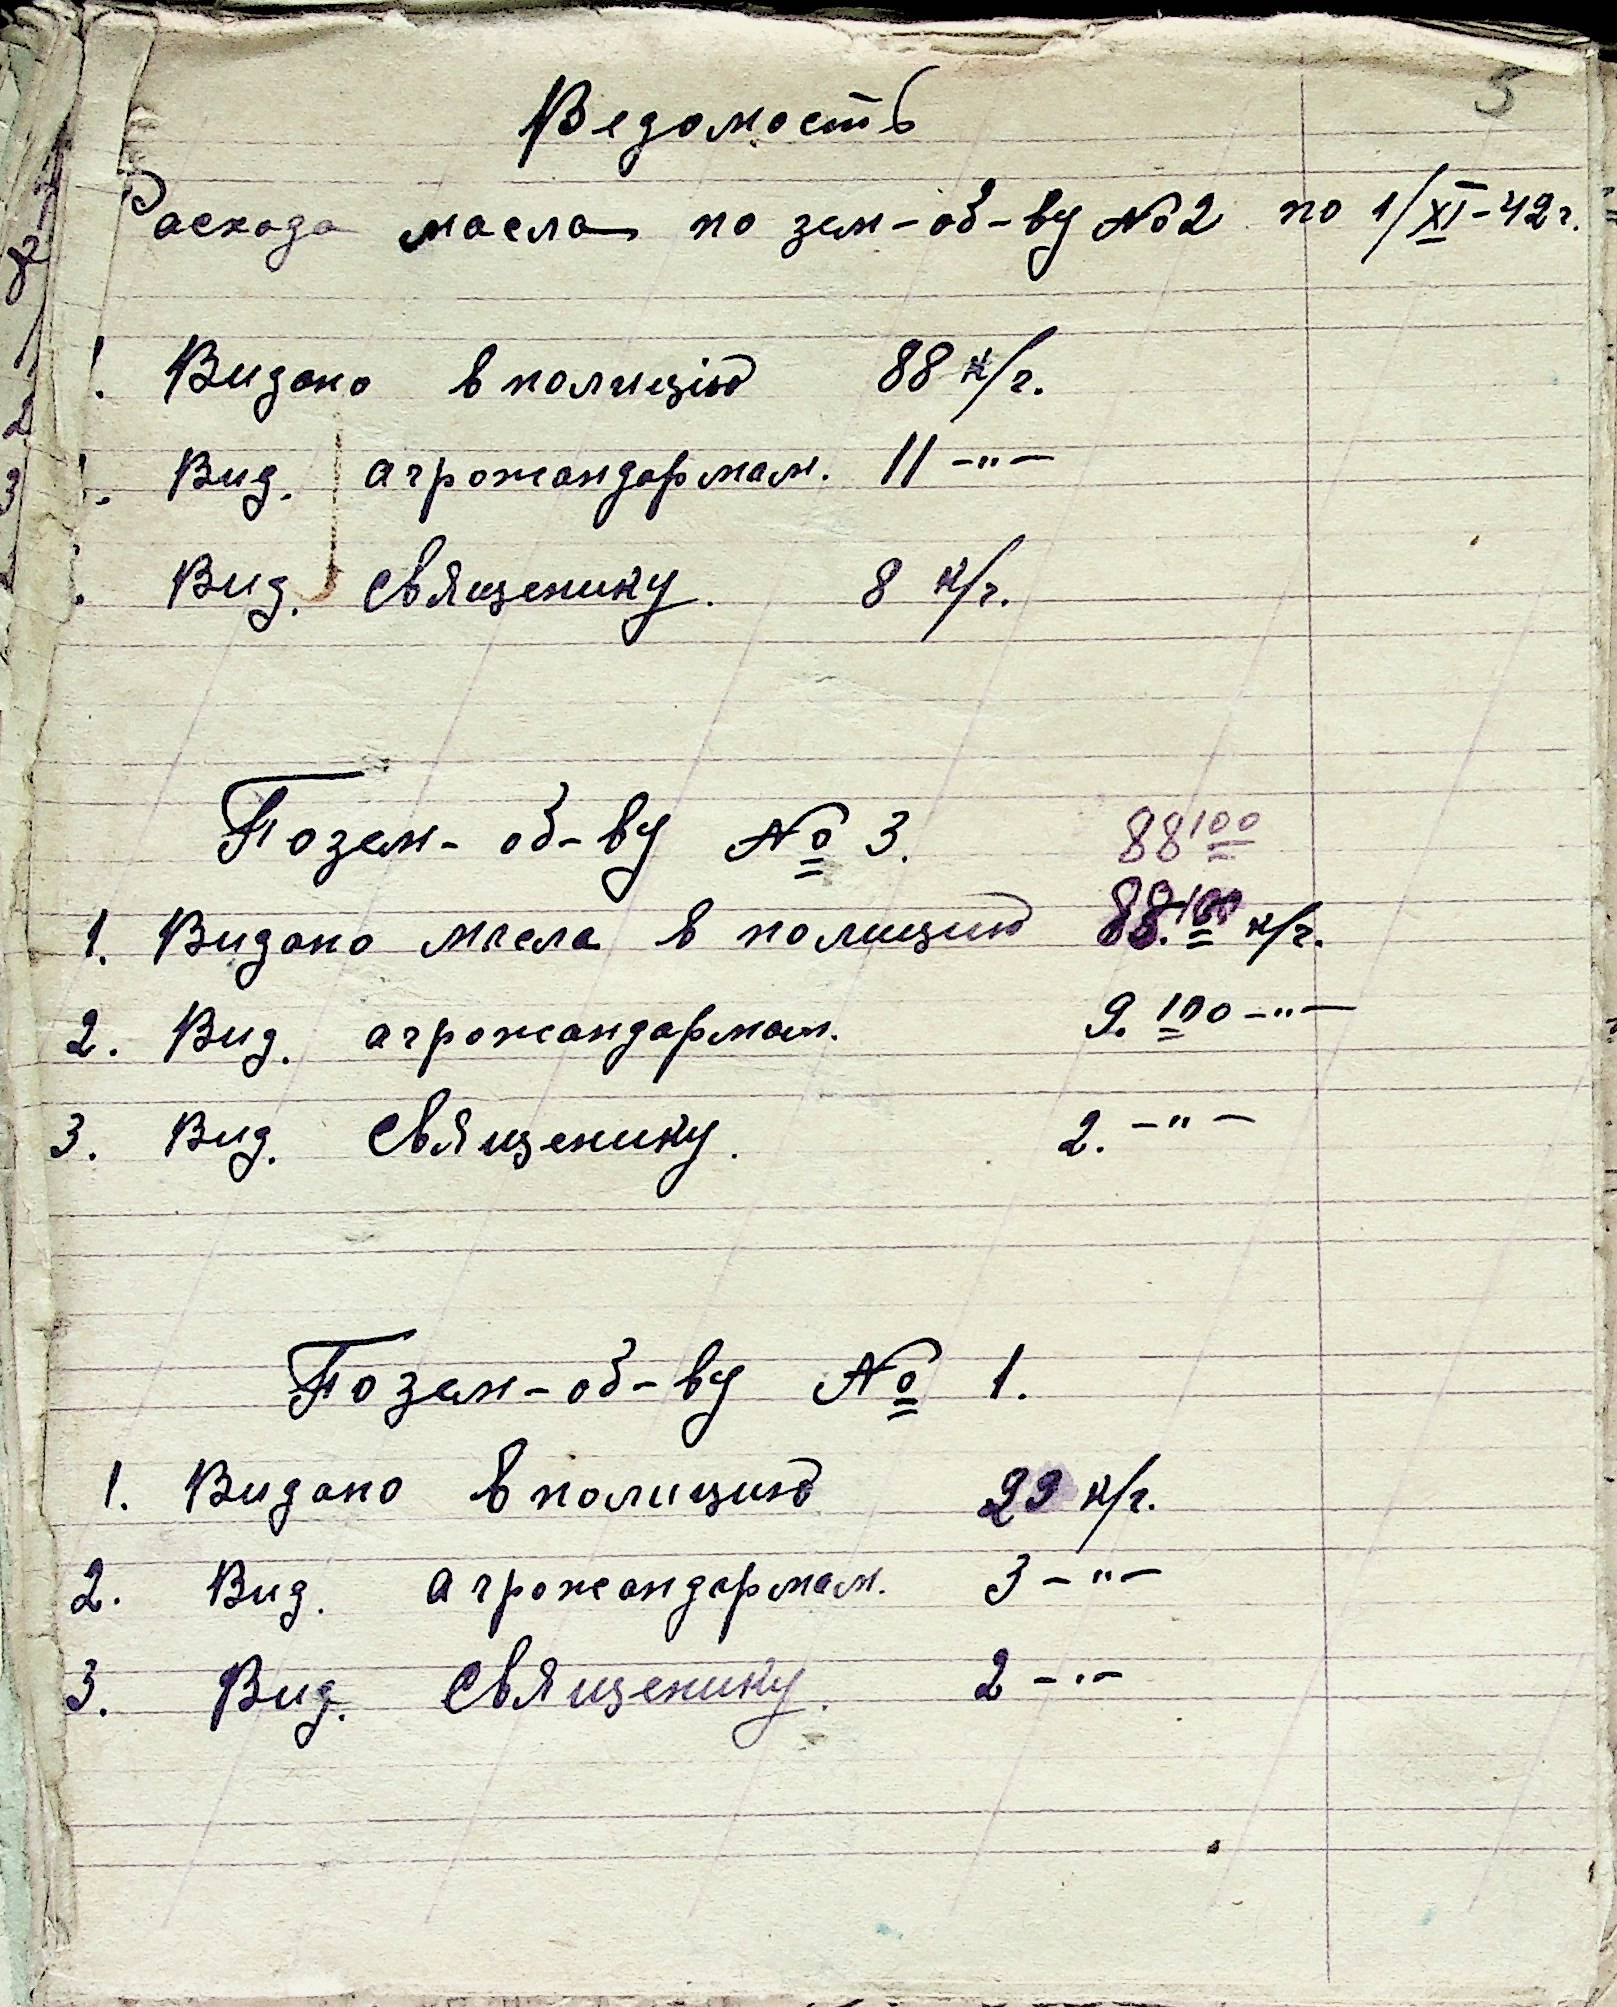 5
Ведомость
Расхода масла по зем-об-ву №2 по 1/XI-42 г.
. Видано в полицію 88 к/г.
. Вид. агрожандармам. 11 -"-
. Вид. священику. 8 к/г.
По зем-об-ву № 3. 88 100
1. Видано масла в полицию 88.100 к/г.
2. Вид. агрожандармам. 9.100 -"-
3. Вид. священику. 2. -"-
По зем-об-ву № 1.
1. Видано в полицию 29 к/г.
2. Вид. агрожандармам. 3 -"-
3. Вид. священику. 2 -"-